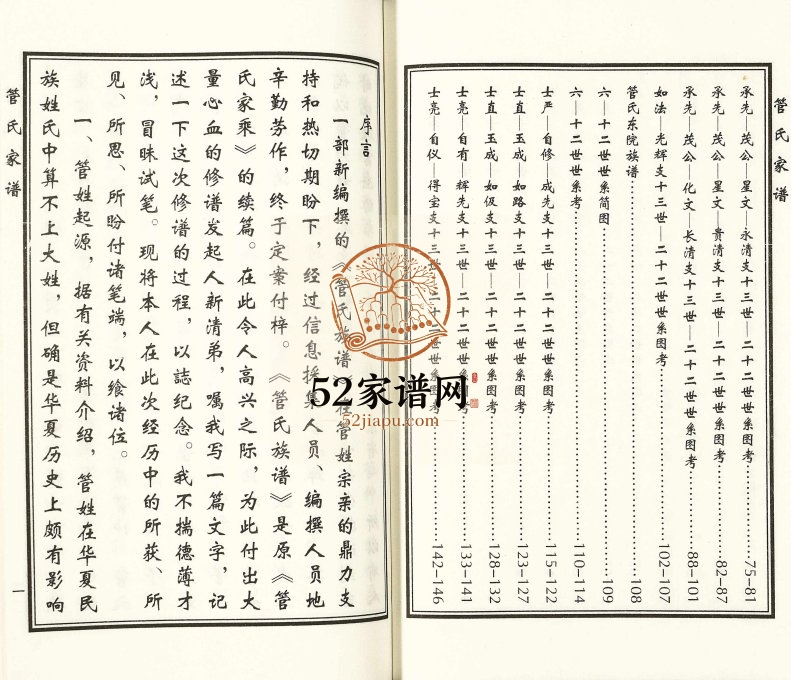 管氏家谱
承先——茂公——星文——永清支十三世——二十二世世系图考………75-81
承先——茂公——星文——贵清支十三世——二十二世世系图考………82-87
承先——茂公——化文——长清支十三世——二十二世世系图考………88-101
如法——光辉支十三世——二十二世世系图考………102-107
管氏东院族谱………108
六——十二世世系简图………109
六——十二世世系考………110-114
士严——自修——成先支十三世——二十二世世系图考………115-122
士直——玉成——如路支十三世——二十二世世系图考………123-127
士直——玉成——如伋支十三世——二十二世世系图考………128-132
士亮——自有——辉先支十三世——二十二世世系图考………133-141
士亮——自仪——得宝支十三世——二十二世世系图考………142-146
序言
一部新编撰的《管氏族谱》在管姓宗亲的鼎力支
持和热切期盼下，经过信息採集人员、编撰人员地
辛勤劳作，终于定案付梓。《管氏族谱》是原《管
氏家乘》的续篇。在此令人高兴之际，为此付出大
量心血的修谱发起人新清弟，嘱我写一篇文字，记
述一下这次修谱的过程，以誌纪念。我不揣德薄才
浅，冒昧试笔。现将本人在此次经历中的所获、所
见、所思、所盼付诸笔端，以飨诸位。
一、管姓起源，据有关资料介绍，管姓在华夏民
族姓氏中算不上大姓，但确是华夏历史上颇有影响
管氏家谱
一
52家谱网
52jiapu.com